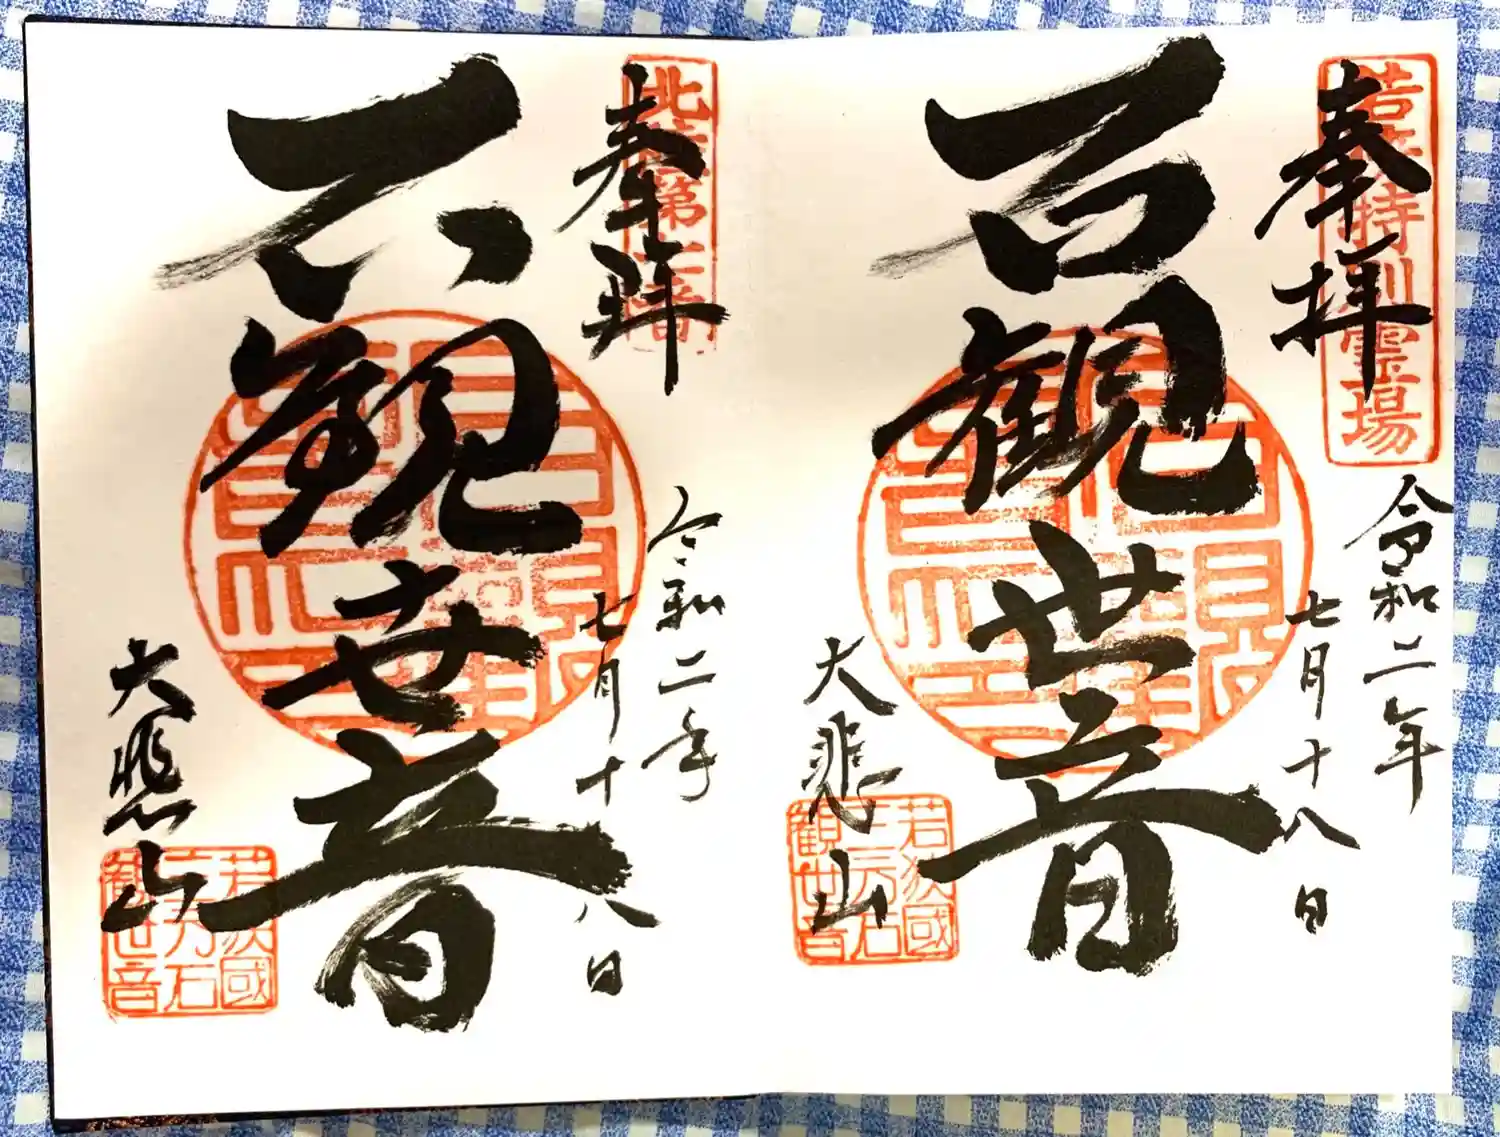 若狭特別霊場
奉拝
令和二年
七月十八日
石観世音
大悲山
若狭國
三方石
観世音
北陸第七番
奉拝
令和二年
七月十八日
石観世音
大悲山
若狭國
三方石
観世音